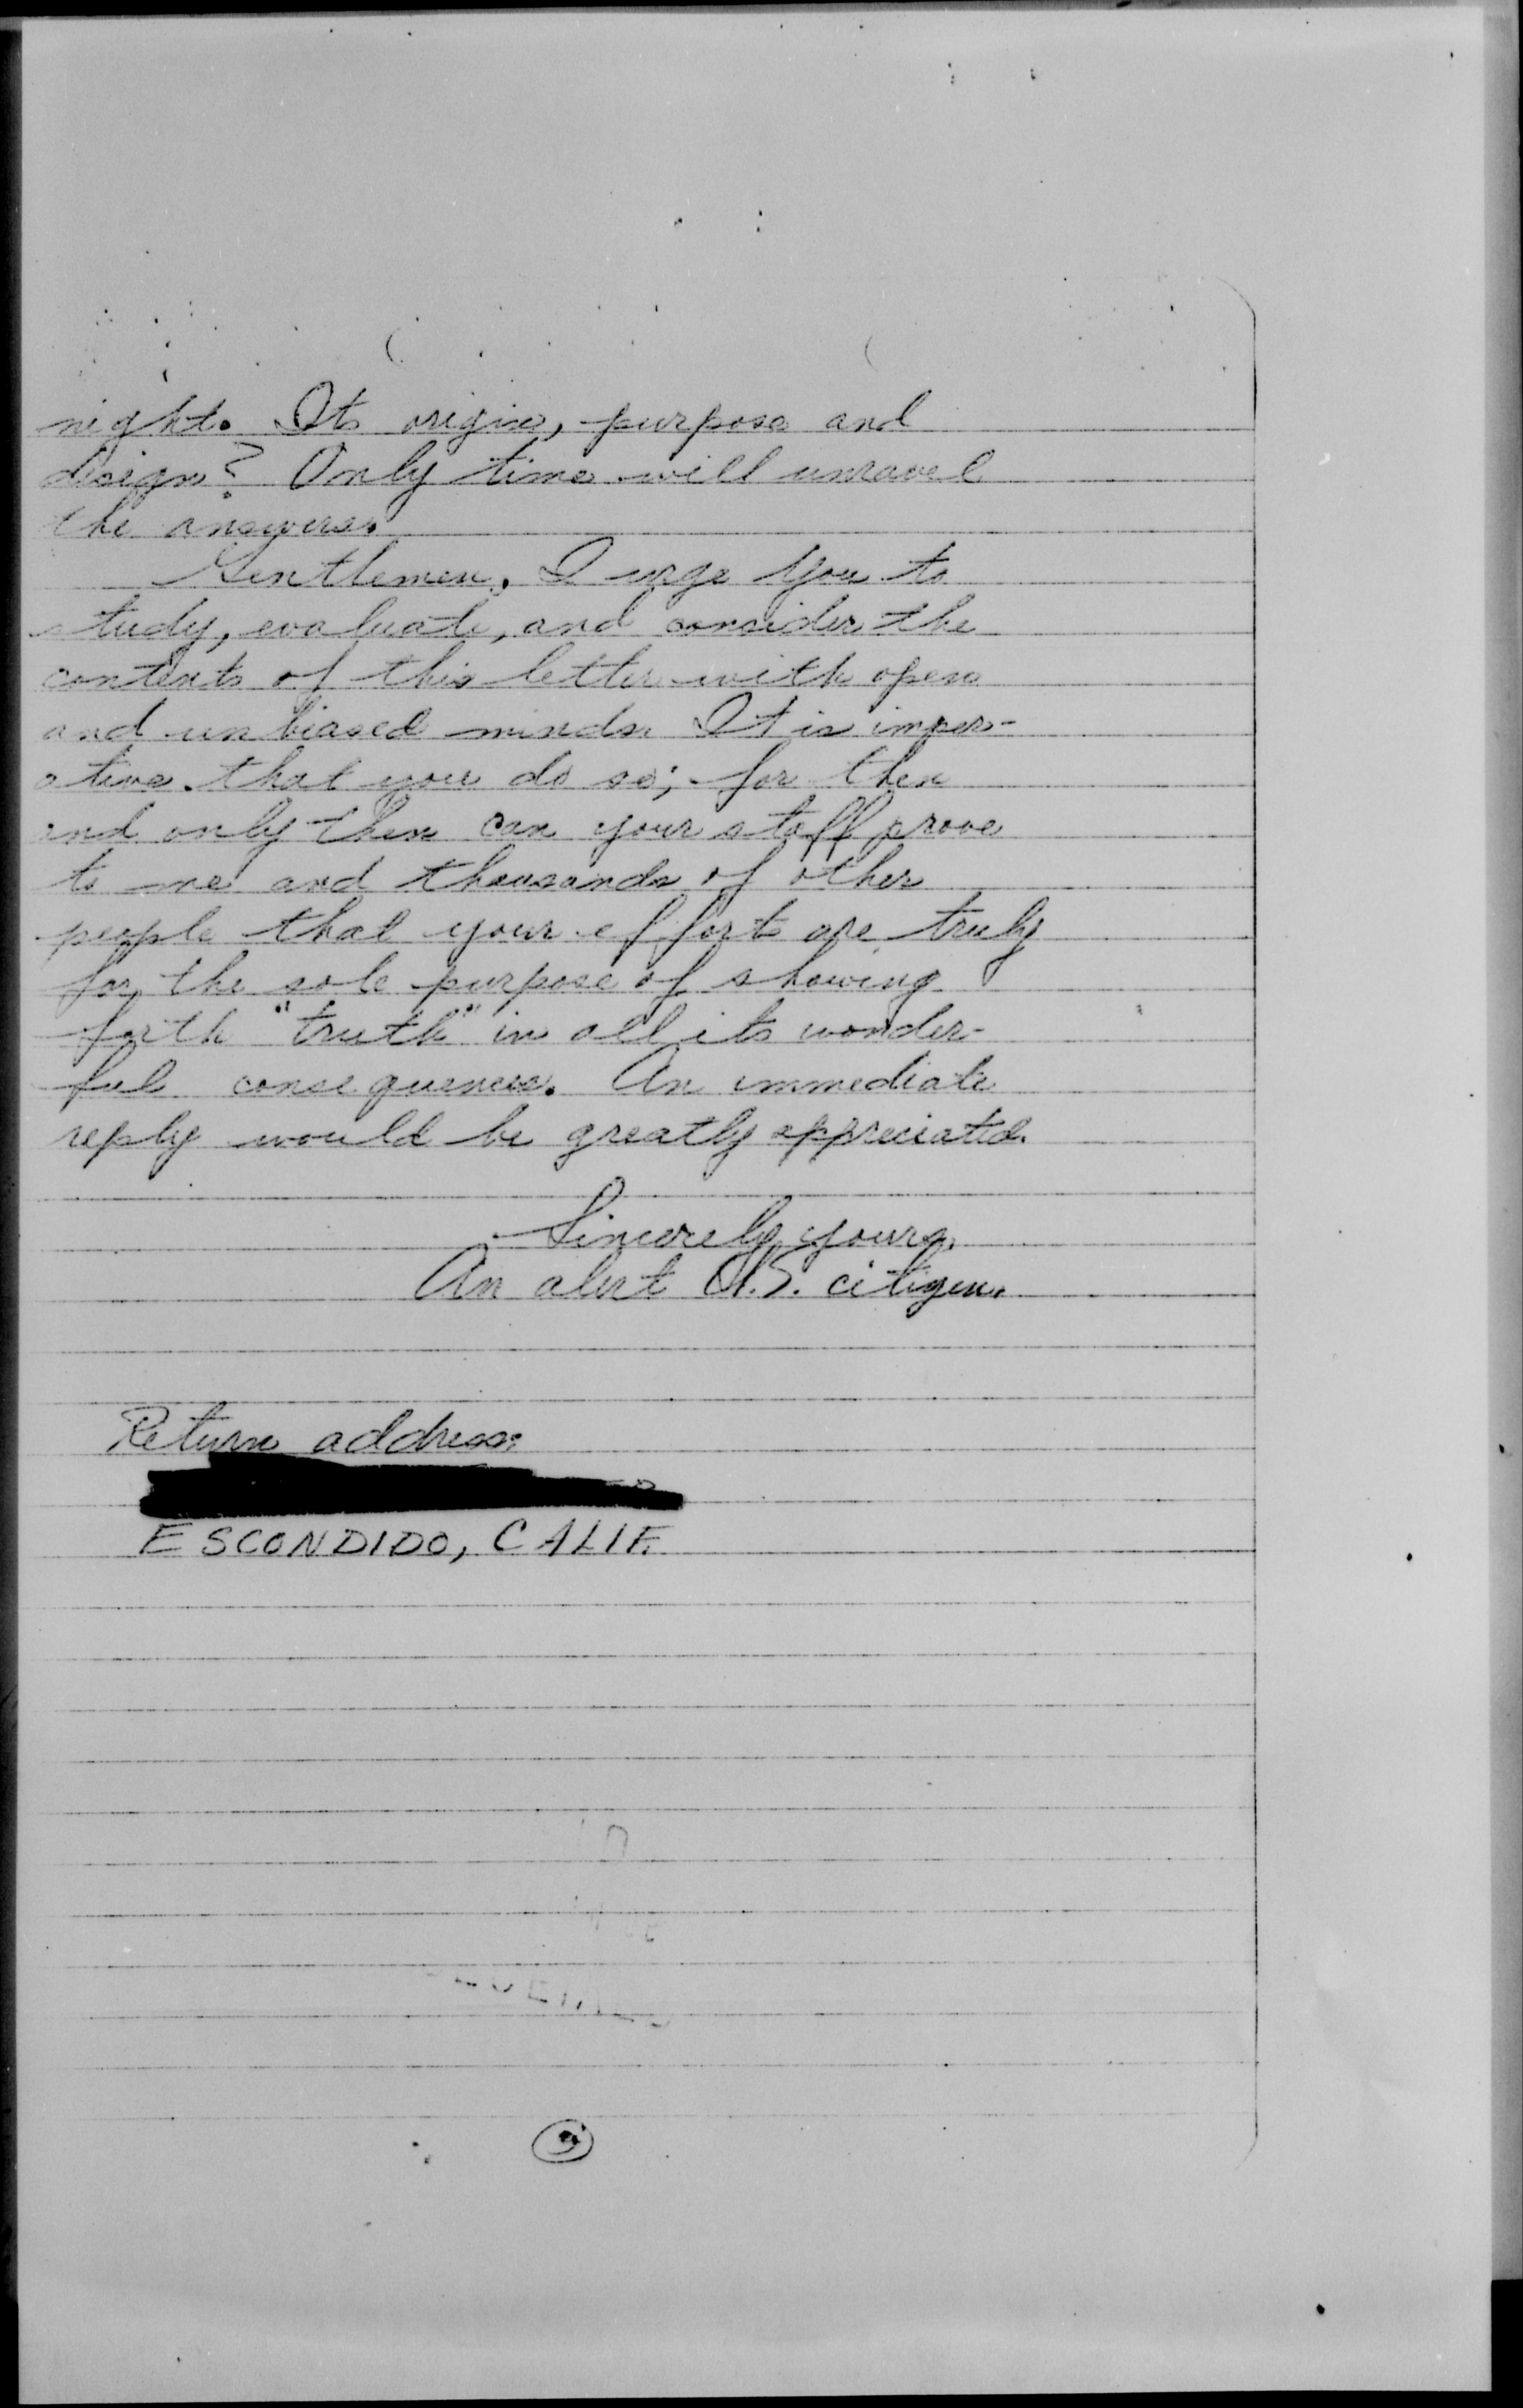 night. Its origin, purpose and
design? Only time will unravel
the answers.
Gentlemen, I urge you to
study, evaluate, and consider the
contents of this letter with open
and unbiased minds. It is imper-
ative that you do so; for then
and only then can your staff prove
to me and thousands of other
people that your effort are truly
for the sole purpose of showing
forth "truth" in all its wonder-
ful consequences. An immediate
reply would be greatly appreciated.
Sincerely yours,
An alert U.S. citizen.
Return address:
ESCONDIDO, CALIF.